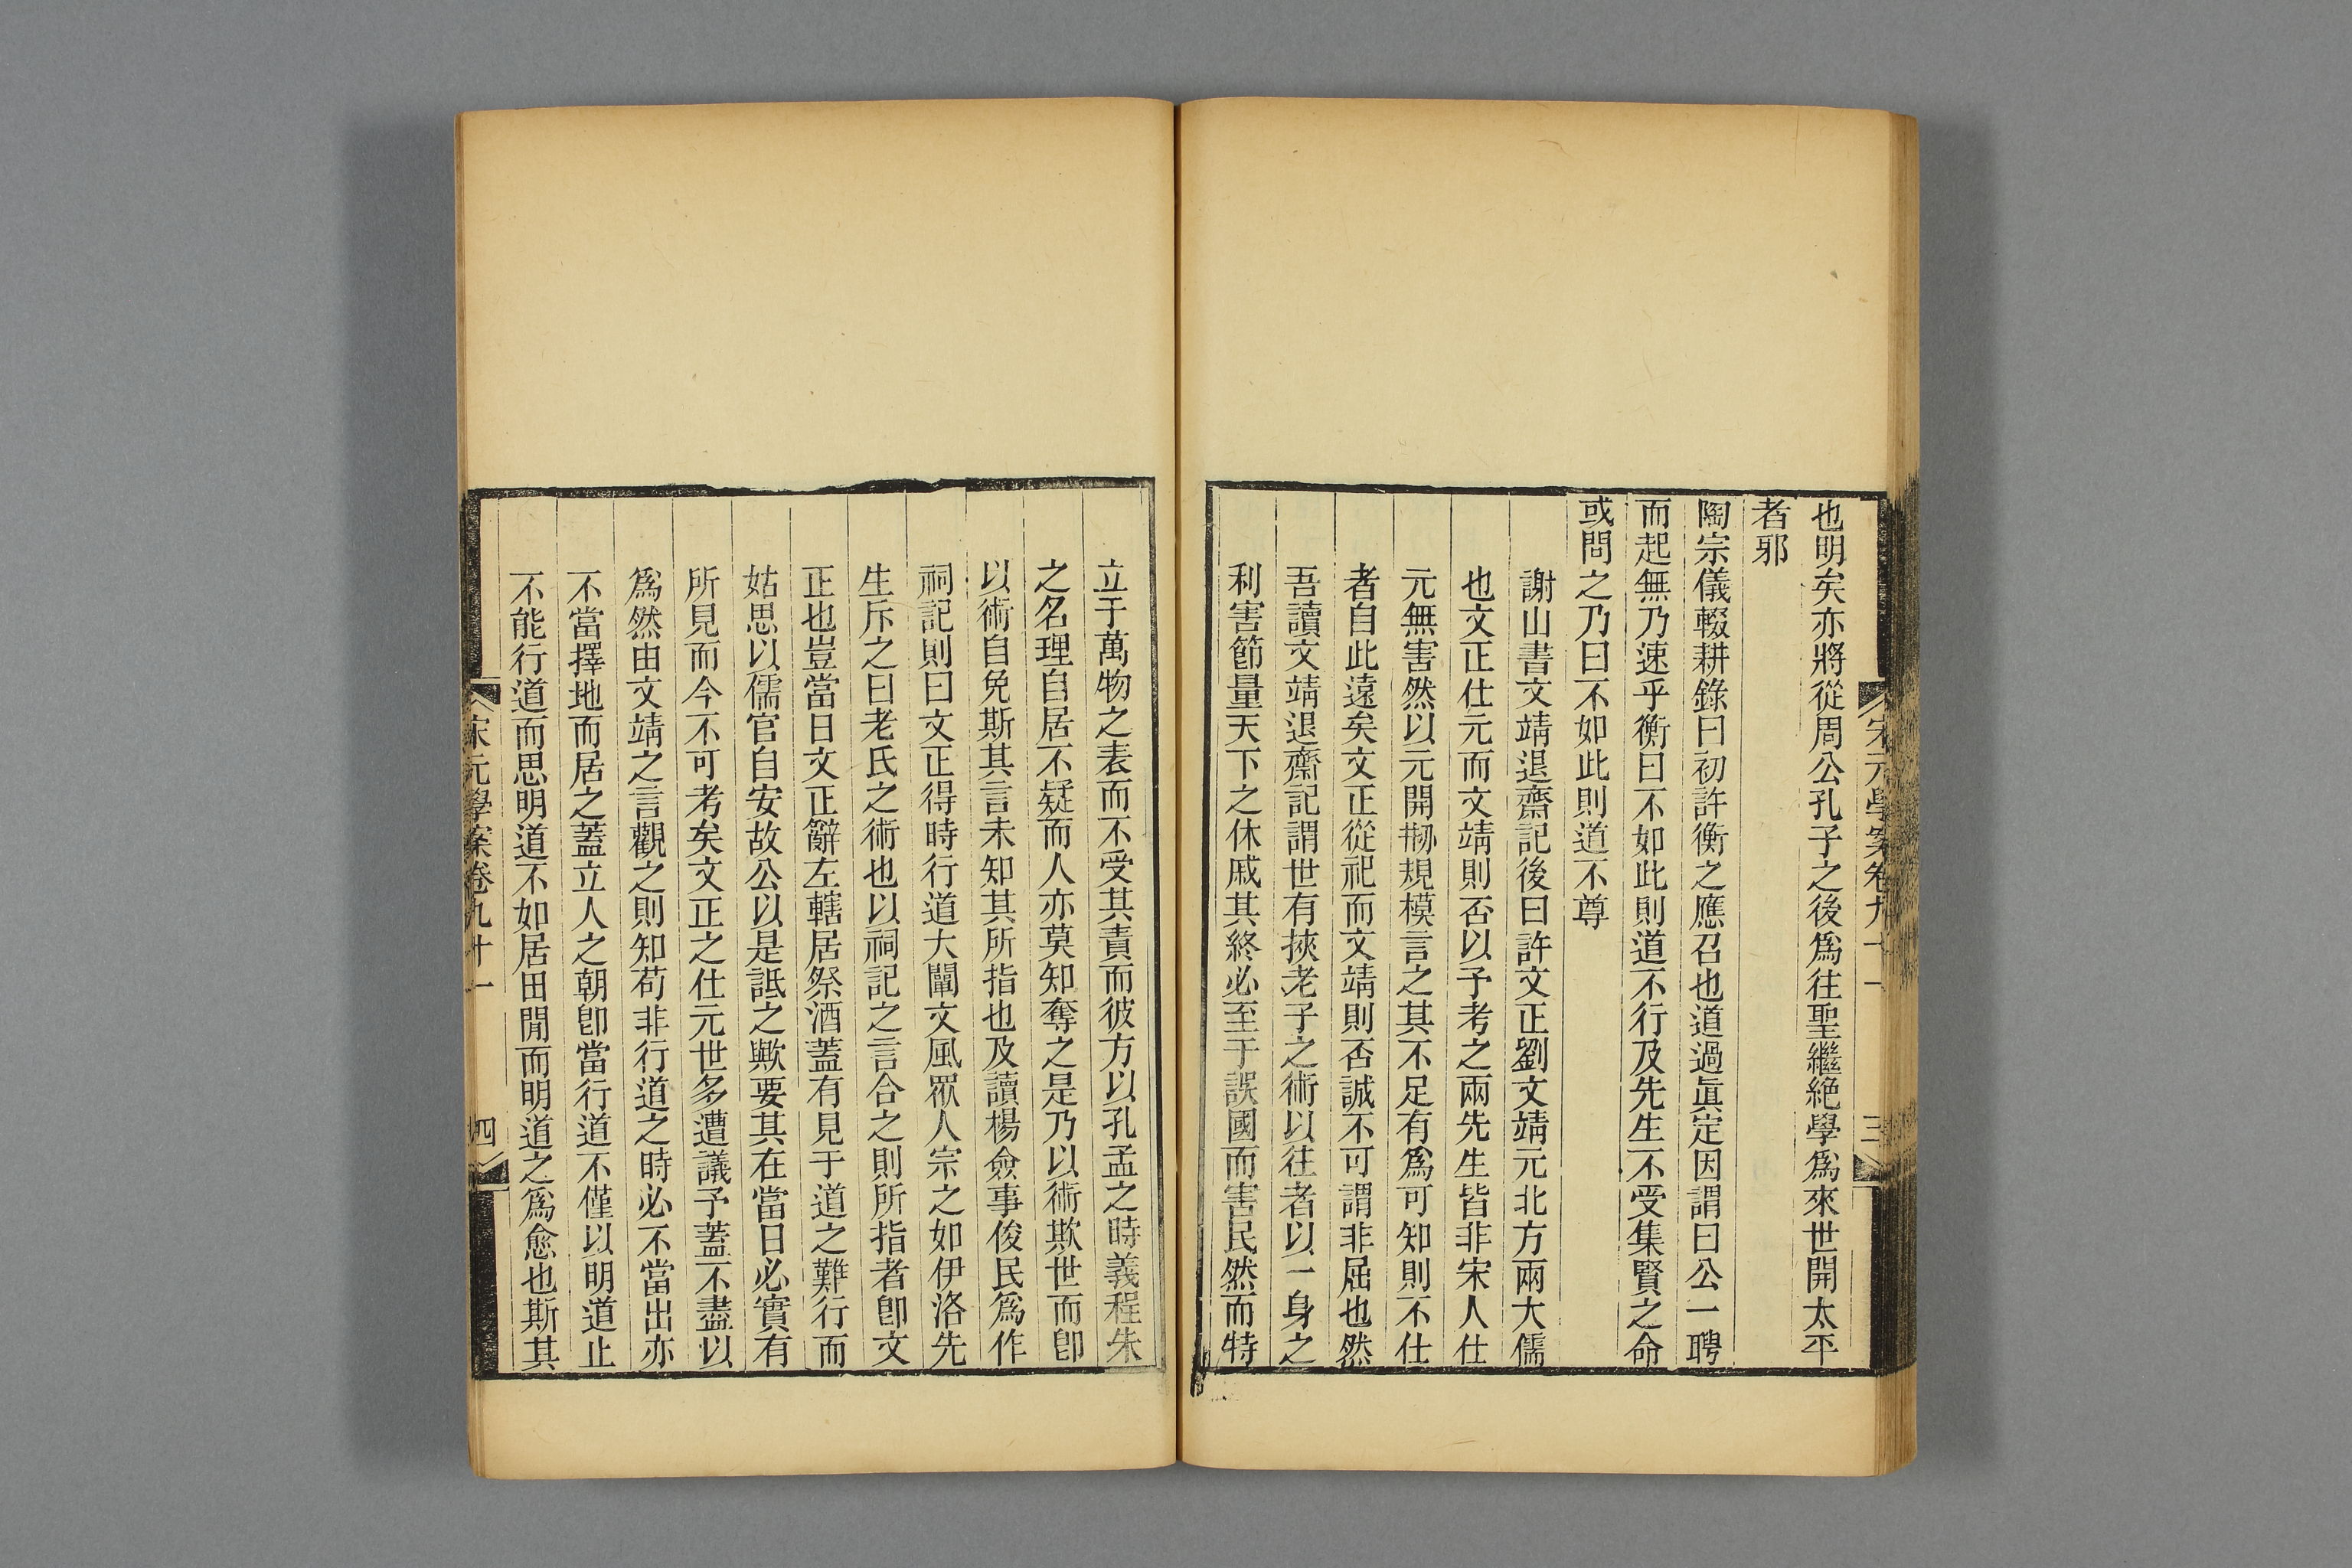 宋元學案卷九十一
三
也明矣亦將從周公孔子之後爲往聖繼絕學爲來世開太平
者邪
陶宗儀輟耕錄曰初許衡之應召也道過眞定因謂曰公一聘
而起無乃速乎衡曰不如此則道不行及先生不受集賢之命
或問之乃曰不如此則道不尊
謝山書文靖退齋記後曰許文正劉文靖元北方兩大儒
也文正仕元而文靖則否以予考之兩先生皆非宋人仕
元無害然以元開剙規模言之其不足有爲可知則不仕
者自此遠矣文正從祀而文靖則否誠不可謂非屈也然
吾讀文靖退齋記謂世有挾老子之術以往者以一身之
利害節量天下之休戚其終必至于誤國而害民然而特
立于萬物之表而不受其責而彼方以孔孟之時義程朱
之名理自居不疑而人亦莫知奪之是乃以術欺世而卽
以術自免斯其言未知其所指也及讀楊僉事俊民爲作
祠記則曰文正得時行道大闡文風眾人宗之如伊洛先
生斥之曰老氏之術也以祠記之言合之則所指者卽文
正也豈當日文正辭左轄居祭酒蓋有見于道之難行而
姑思以儒官自安故公以是詆之歟要其在當日必實有
所見而今不可考矣文正之仕元世多遭議予蓋不盡以
爲然由文靖之言觀之則知苟非行道之時必不當出亦
不當擇地而居之蓋立人之朝卽當行道不僅以明道止
不能行道而思明道不如居田閒而明道之爲愈也斯其
宋元學案卷九十一
四